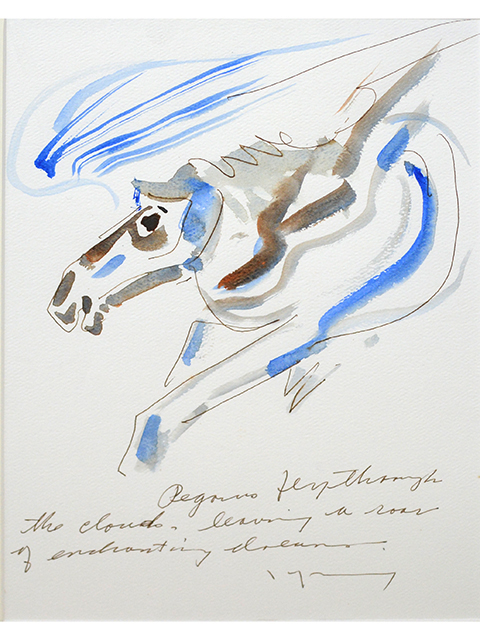 Pegasus fly through
the clouds, leaving a roar
of enchanting dreams.